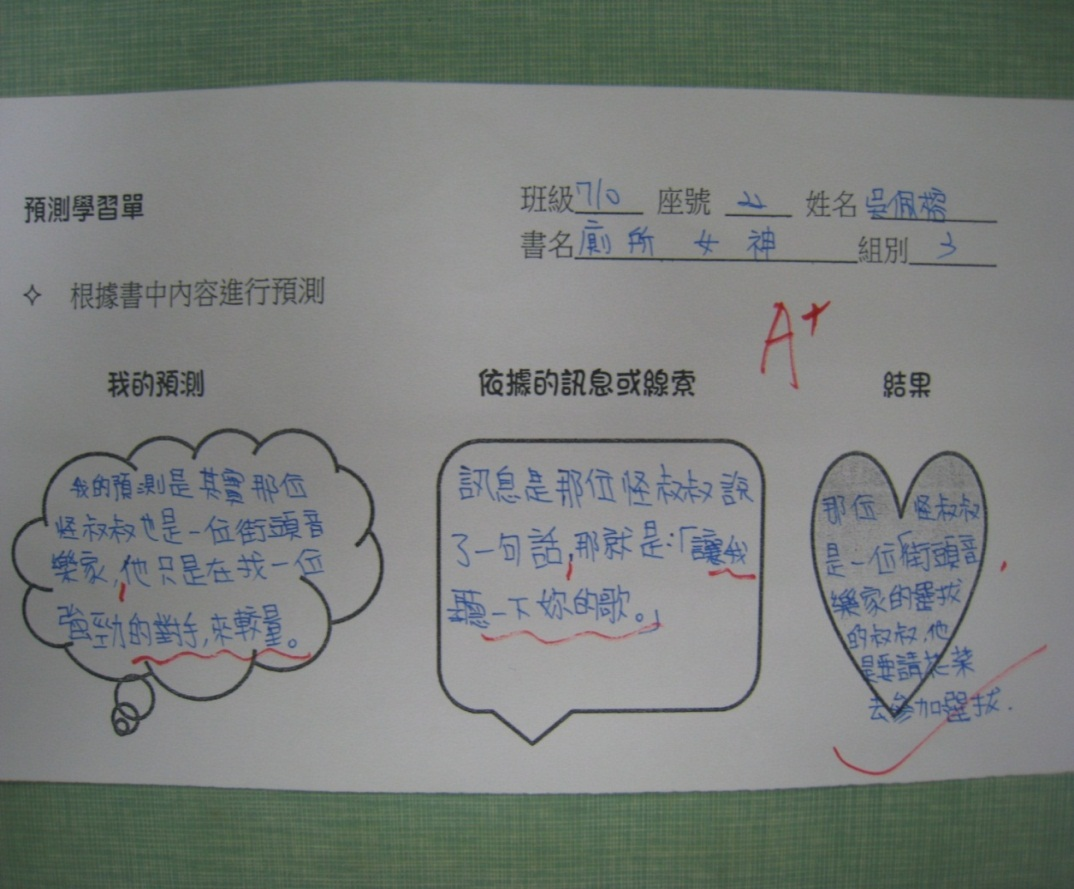 預測學習單
班級 710 座號 姓名 吳佩
書名 廁所女神 組別 3
✧ 根據書中內容進行預測
A+
我的預測
我的預測是其實那位
怪叔叔也是一位街頭音
樂家,他只是在找一位
強勁的對手,來較量。
依據的訊息或線索
訊息是那位怪叔叔說
了一句話,那就是:「讓我
聽一下妳的歌。」
結果
那位怪叔叔
是一位「街頭音
樂家的選拔
的叔叔,他
是要請花菜
去參加選拔.